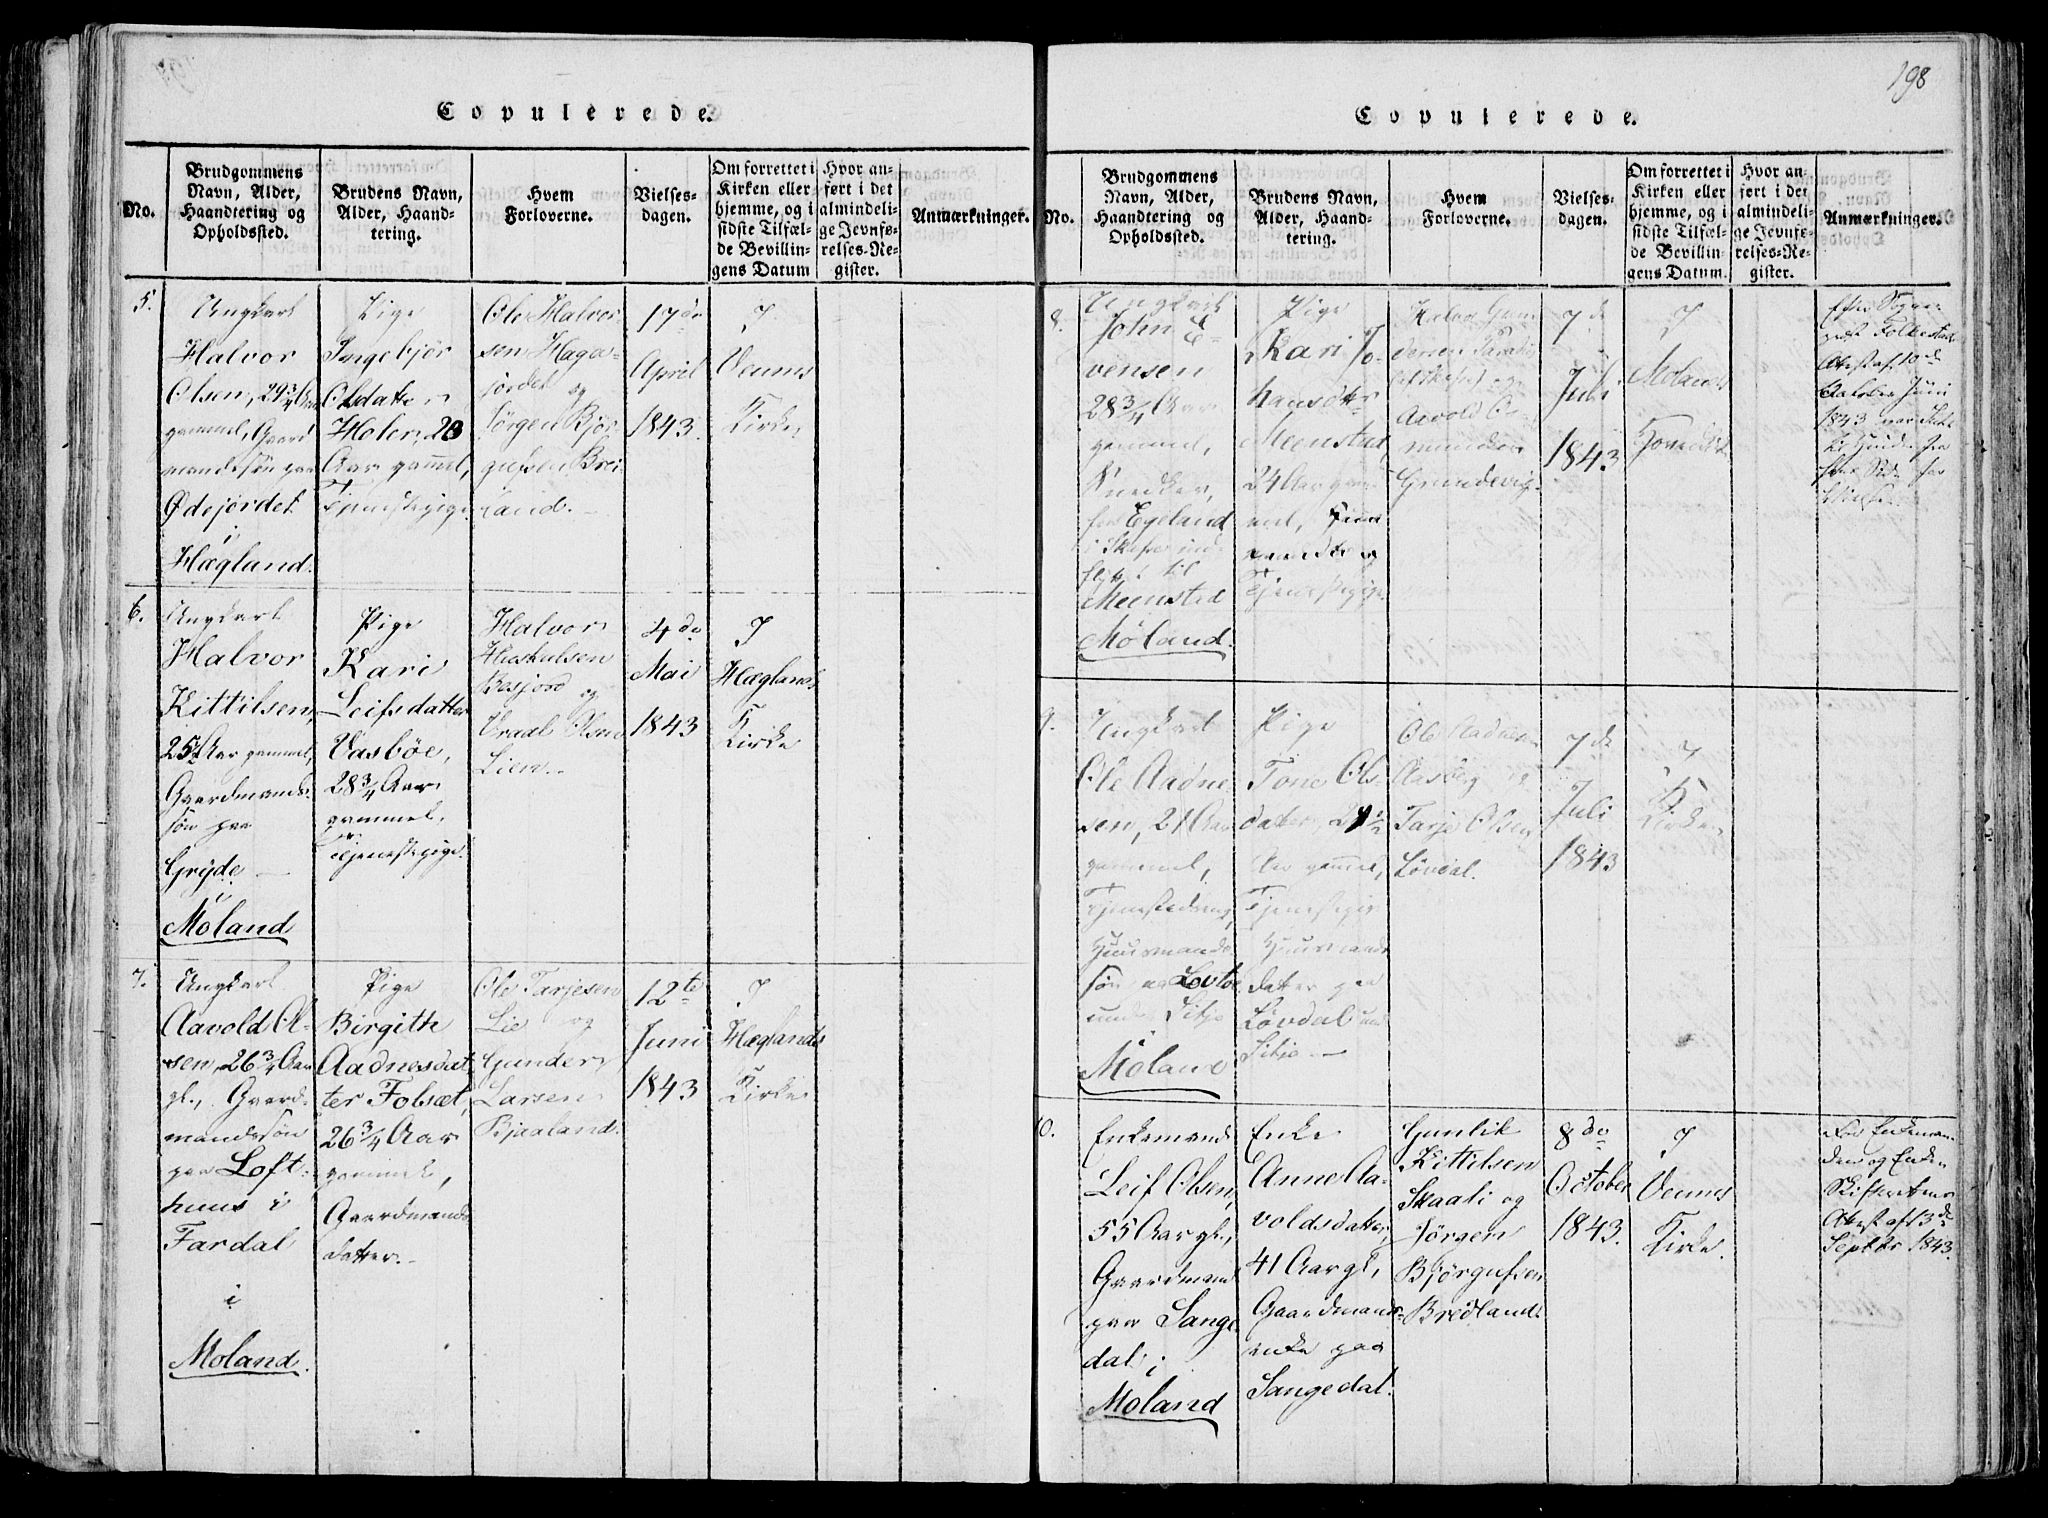 198
Copulerede.
No.
Brudgommens
Navn, Alder,
Haandtering og
Opholdssted.
Brudens Navn,
Alder, Haand-
tering.
Hvem
Forloverne.
Vielses-
dagen.
Om forrettet i
Kirken eller
hjemme, og i
sidste Tilfæl-
de Bevillin-
gens Datum
Hvor an-
ført i det
almindeli-
ge Jevnfø-
relses-Re-
gister.
Anmærkninger.
5.
Ungkarl
Halvor
Olsen, 29¾ Aar
gammel, Gaard
mandssøn paa
Ødejordet
i
Hægland.
Pige
Ingebjør
Olsdatter
Holen, 28
Aar gammel,
Tjenestepige.
Ole Halvor
sen Haga-
jordet og
Jørgen Bjør
gufsen Brei
land.
17de
April
1843.
I
Veums
Kirke
6.
Ungkarl
Halvor
Kittilsen,
25 Aar gammel,
Gaardmands-
søn paa
Gryde
i
Moland
Pige
Kari
Leifsdatter
Vasbøe,
28¾ Aar
gammel,
Tjenestepige.
Halvor
og
Vraal Olsen
Lien.
4de
Mai
1843
I
Hæglands
Kirke
7.
Ungkarl
Aavold O-
sen, 26¾ Aar
gl., Gaard-
mandssøn
paa Loft-
huus i
Fardal
i
Moland.
Pige
Birgith
Aadnesdat
ter Folsæt,
26¾ Aar
gammel,
Gaardmands
datter.
Ole Tarjesen
Lie og
Gunder
Larsen
Bjaaland.
12te
Juni
1843
I
Hæglands
Kirke
Copulerede.
No.
Brudgommens
Navn, Alder,
Haandtering og
Opholdssted.
Brudens Navn,
Alder, Haand-
tering.
Hvem
Forloverne.
Vielses-
dagen.
Om forrettet i
Kirken eller
hjemme, og i
sidste Tilfæl-
de Bevillin-
gens Datum.
Hvor an-
ført i det
almindeli-
ge Jevnfø-
relses-Re-
gister.
Anmærkninger.
8.
Ungkarl
John E-
vensen
28¾ Aar
gammel,
Snedker,
fra Egeland
i
til
Meensted
Moland.
Pige
Kari Jo-
hansdtr
Meenstad
24 Aar gam
mel,
Tjenestepige.
og
Aavold
Grundevig.
7de
Juli
1843
I
Molands
Attest af 10de
Juni
1843
9.
Ungkarl
Ole Aadne-
sen, 21 Aar
gammel,
Tjenestedreng,
Huusmands
søn
under Sitje
i
Moland
Pige
Tone Ols-
datter, 21½
Aar gammel,
Tjenestepige
Huusmands
datter paa
Løvdal und
Sitje.
Ole Aadnesen
Aasberg og
Tarje Olsen
Løvdal.
7de
Juli
1843
I
Kirke
10.
Enkemand
Leif Olsen,
55 Aar gl.,
Gaardmand
paa Sange-
dal i
Moland
Enke
Anne Aa-
voldsdatter,
41 Aar gl,
Gaardmands-
enke paa
Sangedal.
Gunlik
Kittilsen
Skaali og
Jørgen
Bjørgufsen
Bredland.
8de
October
1843.
I
Veums
Kirke.
For Enkeman-
den og Enken
Skifterettens
Attest af 13de
Septbr 1843.